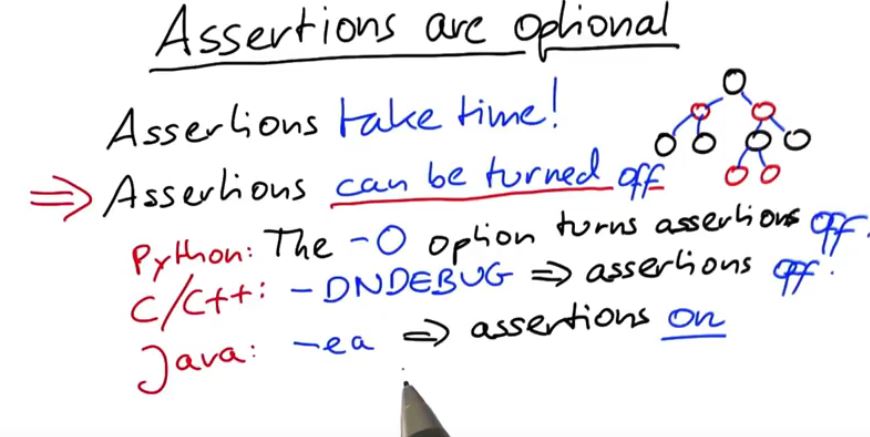 Assertions are optional
Assertions take time!
⇒ Assertions can be turned off
Python: The -O option turns assertions off.
C/C++: -DNDEBUG ⇒ assertions off.
Java: -ea ⇒ assertions on